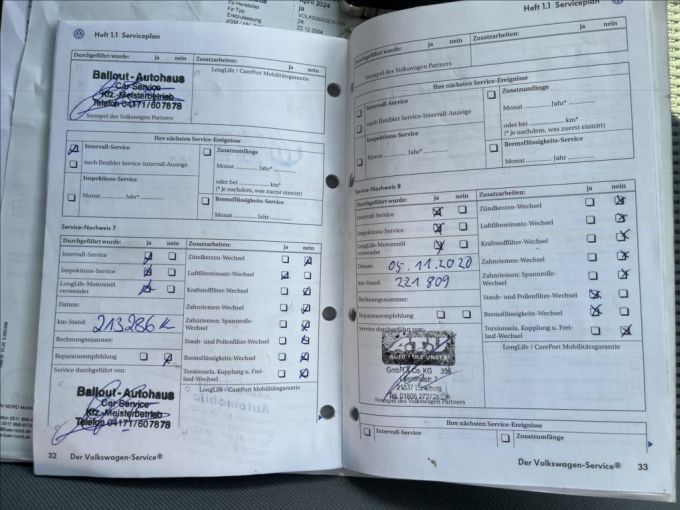 April 2024
Fz-Hersteller
Fz-Typ
Erstzulassung
VOLKSWAGEN-VW
2K
22.12.2004
Heft 1.1 Serviceplan
Durchgeführt wurde: ja nein
Zusatzarbeiten:
LongLife / CarePort Mobilitätsgarantie
Ballout-Autohaus
Car Service
Kfz.-Meisterbetrieb
Telefon 04171/607878
Stempel des Volkswagen Partners
Ihre nächsten Service-Ereignisse
Intervall-Service
nach flexibler Service-Intervall-Anzeige
Inspektions-Service
Monat Jahr
Zusatzumfänge
Monat Jahr*
oder bei km*
(* je nachdem, was zuerst eintritt)
Bremsflüssigkeits-Service
Monat Jahr
Service-Nachweis 7
Durchgeführt wurde: ja nein
Intervall-Service
Inspektions-Service
LongLife-Motorenöl
verwendet
Datum:
km-Stand: 213286 K
Rechnungsnummer:
Reparaturempfehlung
Service durchgeführt von:
Ballout-Autohaus
Car Service
Kfz.-Meisterbetrieb
Telefon 04171/607878
Zusatzarbeiten: ja nein
Zündkerzen-Wechsel
Luftfiltereinsatz-Wechsel
Kraftstofffilter-Wechsel
Zahnriemen-Wechsel
Zahnriemen: Spannrolle-
Wechsel
Staub- und Pollenfilter-Wechsel
Bremsflüssigkeits-Wechsel
Torsionsela. Kupplung u. Frei-
lauf-Wechsel
LongLife / CarePort Mobilitätsgarantie
32 Der Volkswagen-Service®
Heft 1.1 Serviceplan
Durchgeführt wurde: ja nein
Zusatzarbeiten: ja nein
Stempel des Volkswagen Partners
Ihre nächsten Service-Ereignisse
Intervall-Service
nach flexibler Service-Intervall-Anzeige
Inspektions-Service
Monat Jahr*
Zusatzumfänge
Monat Jahr*
oder bei km*
(* je nachdem, was zuerst eintritt)
Bremsflüssigkeits-Service
Monat Jahr
Service-Nachweis 8
Durchgeführt wurde: ja nein
Intervall-Service
Inspektions-Service
LongLife-Motorenöl
verwendet
Datum: 05.11.2020
km-Stand: 221 809
Rechnungsnummer:
Reparaturempfehlung
Service durchgeführt von:
GmbH & Co. KG
Stempel des Volkswagen Partners
Zusatzarbeiten: ja nein
Zündkerzen-Wechsel
Luftfiltereinsatz-Wechsel
Kraftstofffilter-Wechsel
Zahnriemen-Wechsel
Zahnriemen: Spannrolle-
Wechsel
Staub- und Pollenfilter-Wechsel
Bremsflüssigkeits-Wechsel
Torsionsela. Kupplung u. Frei-
lauf-Wechsel
LongLife / CarePort Mobilitätsgarantie
Ihre nächsten Service-Ereignisse
Intervall-Service
Zusatzumfänge
Der Volkswagen-Service® 33